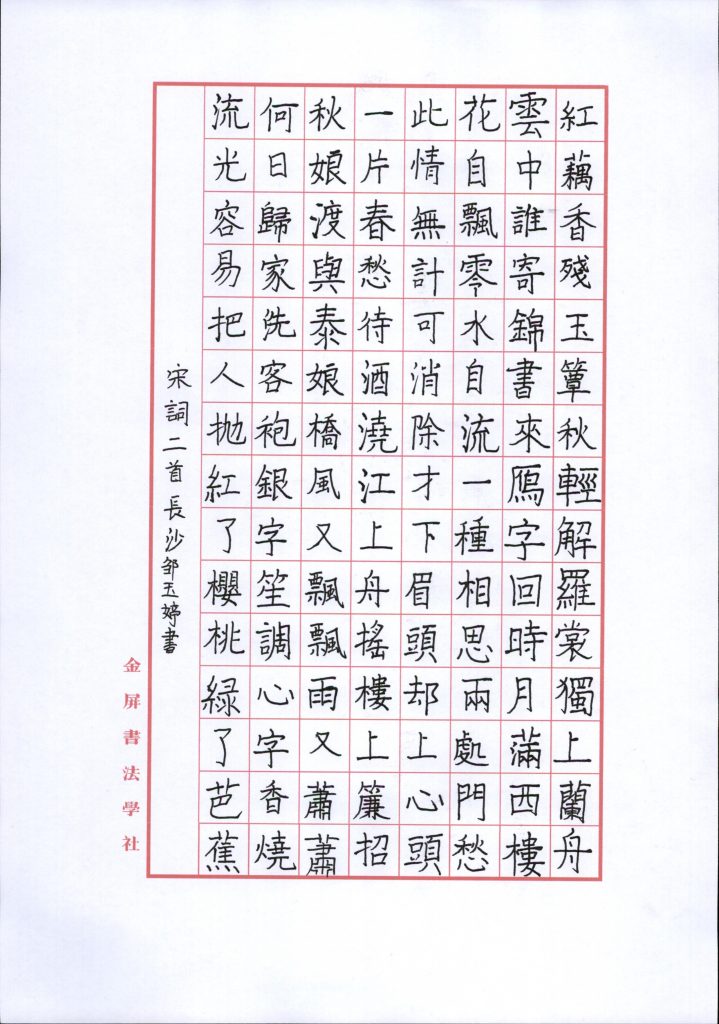 紅藕香殘玉簟秋輕解羅裳獨上蘭舟
雲中誰寄錦書來鴈字回時月滿西樓
花自飄零水自流一種相思兩處門愁
此情無計可消除才下眉頭却上心頭
一片春愁待酒澆江上舟搖樓上簾招
秋娘渡與泰娘橋風又飄飄雨又蕭蕭
何日歸家洗客袍銀字笙調心字香燒
流光容易把人抛紅了櫻桃緑了芭蕉
宋詞二首長沙邹玉婷書
金屏書法學社